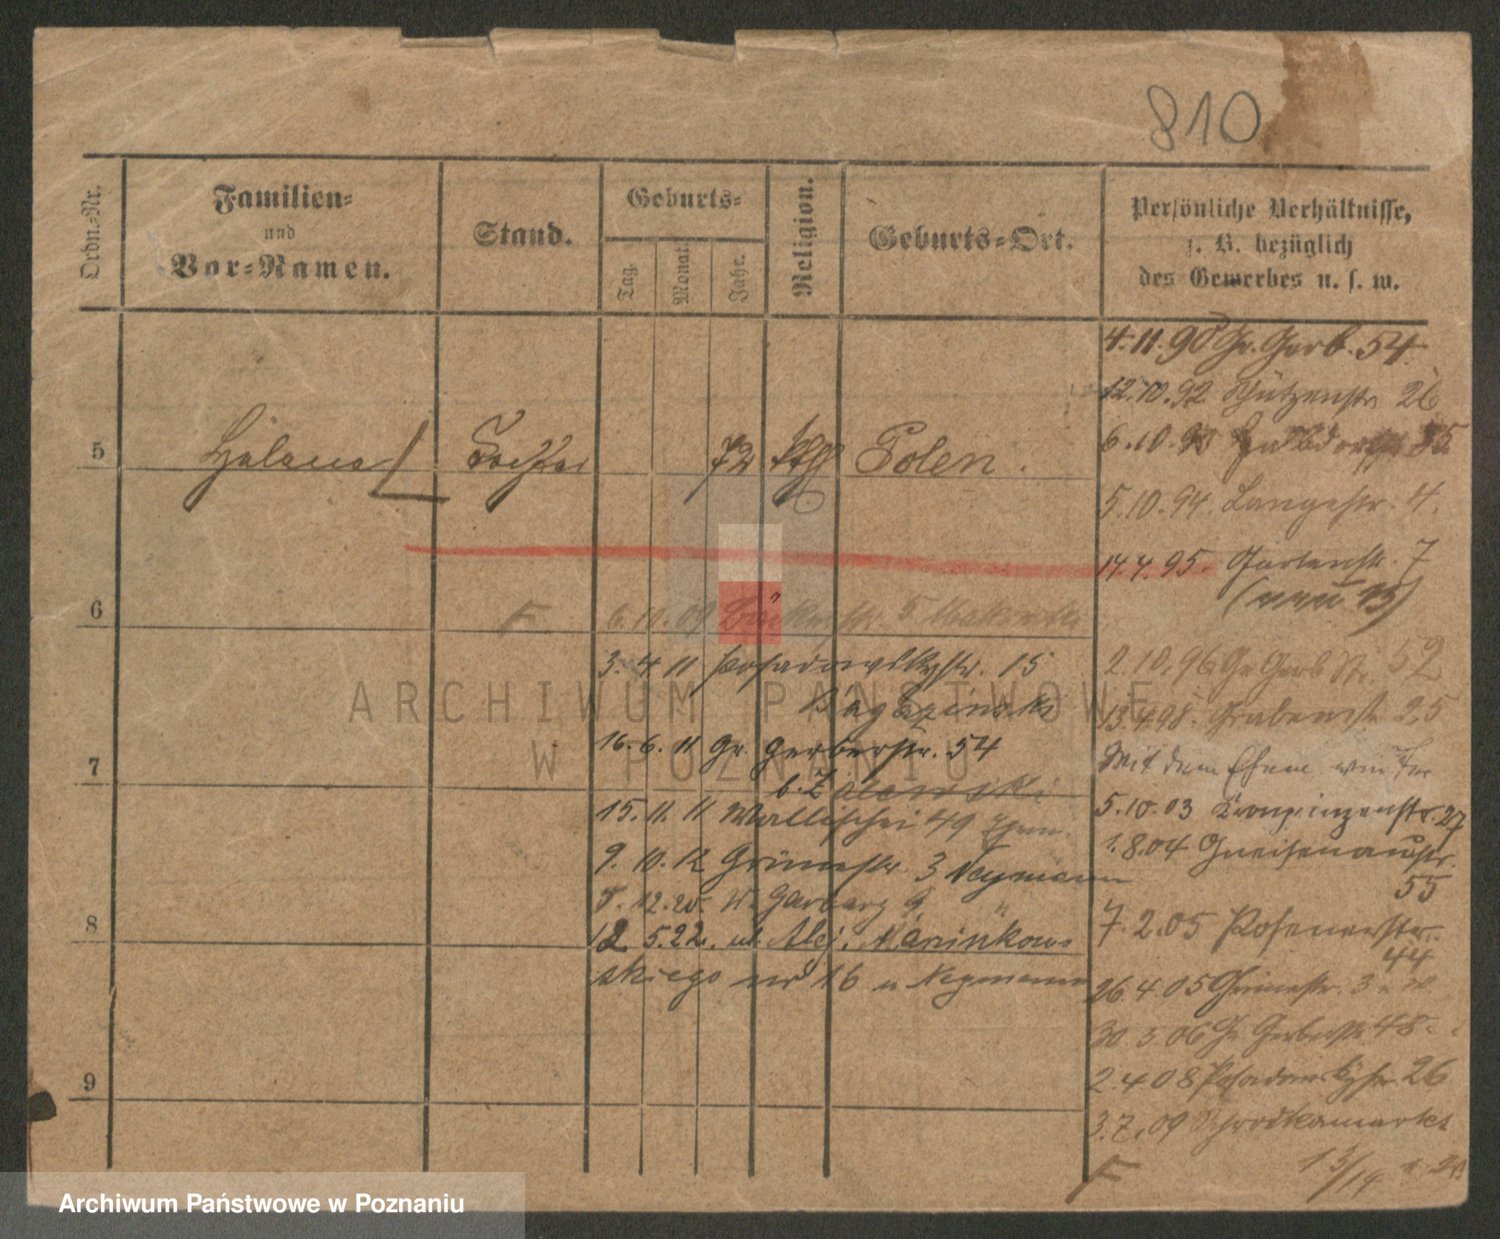 810
Ordn.-Nr.
Familien-
und
Vor-Namen.
Stand.
Geburts-
Tag.
Monat.
Jahr.
Religion.
Geburts-Ort.
Persönliche Verhältnisse,
z. B. bezüglich
des Gewerbes u. s. w.
4.11.90 Gr. Gerb. 54
12.10.92 Schützenstr 26
5 Helena Tochter 72 kath Polen.
6.10.93 Halbdorfstr 35
5.10.94. Langestr. 4.
14.4.95. Gartenstr. 7
(neu 15)
6
6.10.09 Bäckerstr. 5
2.10.96 Gr Gerb Str. 52
3.4.11 Posadowskystr. 15
Bagazinski
13.4.98. Grabenstr 25
16.6.11 Gr. Gerberstr. 54
b. Zalewski
7
Mit dem Ehem.
5.10.03 Kronprinzenstr. 27
15.11.11 Wallischei 49
1.8.04 Gneisenaustr.
55
9.10.12 Grünestr. 3 Neymann
5.12.20. W. Garbary 9 "
7.2.05 Posenerstr.
44
8
12 5.22. ul. Alej. Marinkows
skiego nr 16 u Neymann
26.4.05 Grünestr. 3
30.3.06 Gr Gerberstr 48
2.4.08 Posadowskystr 26
3.7.09 Schrodkamarkt
13/14
9
ARCHIWUM PAŃSTWOWE
W POZNANIU
Archiwum Państwowe w Poznaniu